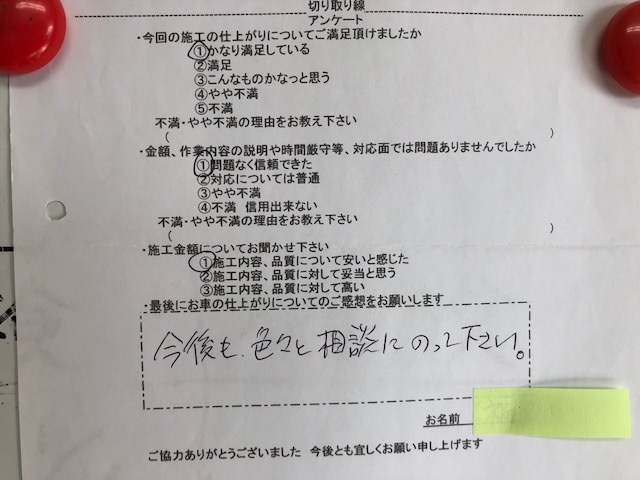 切り取り線
アンケート
・今回の施工の仕上がりについてご満足頂けましたか
①かなり満足している
②満足
③こんなものかなっと思う
④やや不満
⑤不満
不満・やや不満の理由をお教え下さい
( )
・金額、作業内容の説明や時間厳守等、対応面では問題ありませんでしたか
①問題なく信頼できた
②対応については普通
③やや不満
④不満 信用出来ない
不満・やや不満の理由をお教え下さい
( )
・施工金額についてお聞かせ下さい
①施工内容、品質について安いと感じた
②施工内容、品質に対して妥当と思う
③施工内容、品質に対して高い
・最後にお車の仕上がりについてのご感想をお願いします
今後も、色々と相談にのって下さい。
お名前
ご協力ありがとうございました 今後とも宜しくお願い申し上げます